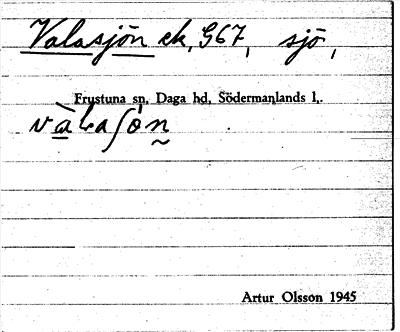 Valasjön ek, G67, sjö,
Frustuna sn, Daga hd, Södermanlands l,.
vàlaʃòn
Artur Olsson 1945